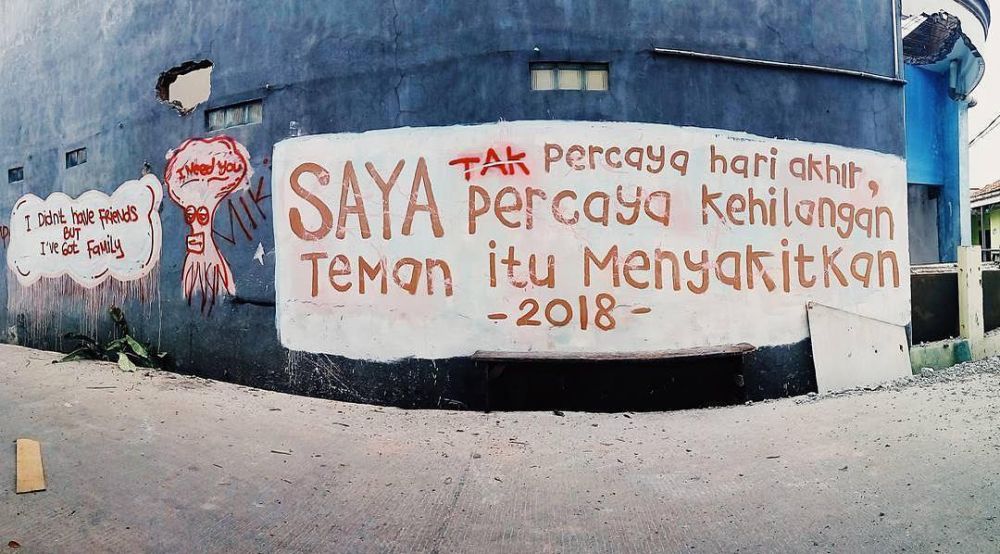 I Didnt have Friends
BUT
I've Got Family
I Need you
SAYA TAK percaya hari akhir,
percaya kehilangan
Teman itu Menyakitkan
-2018-